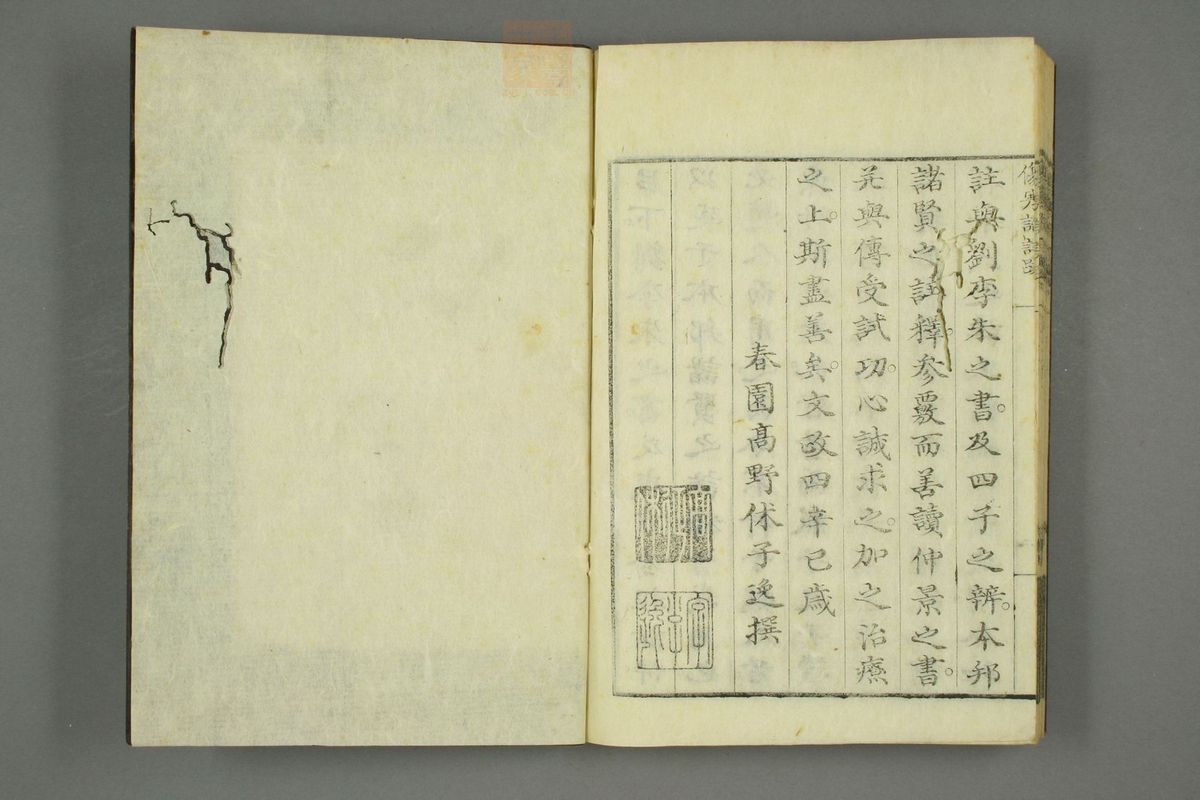 傷寒譜註跋
註與劉李朱之書。及四子之辨。本邦
諸賢之註釋。參覈而善讀仲景之書。
并與傳受試功。心誠求之。加之治療
之上。斯盡善矣。文政四辛巳歲
春園高野休子逸撰
字子逸